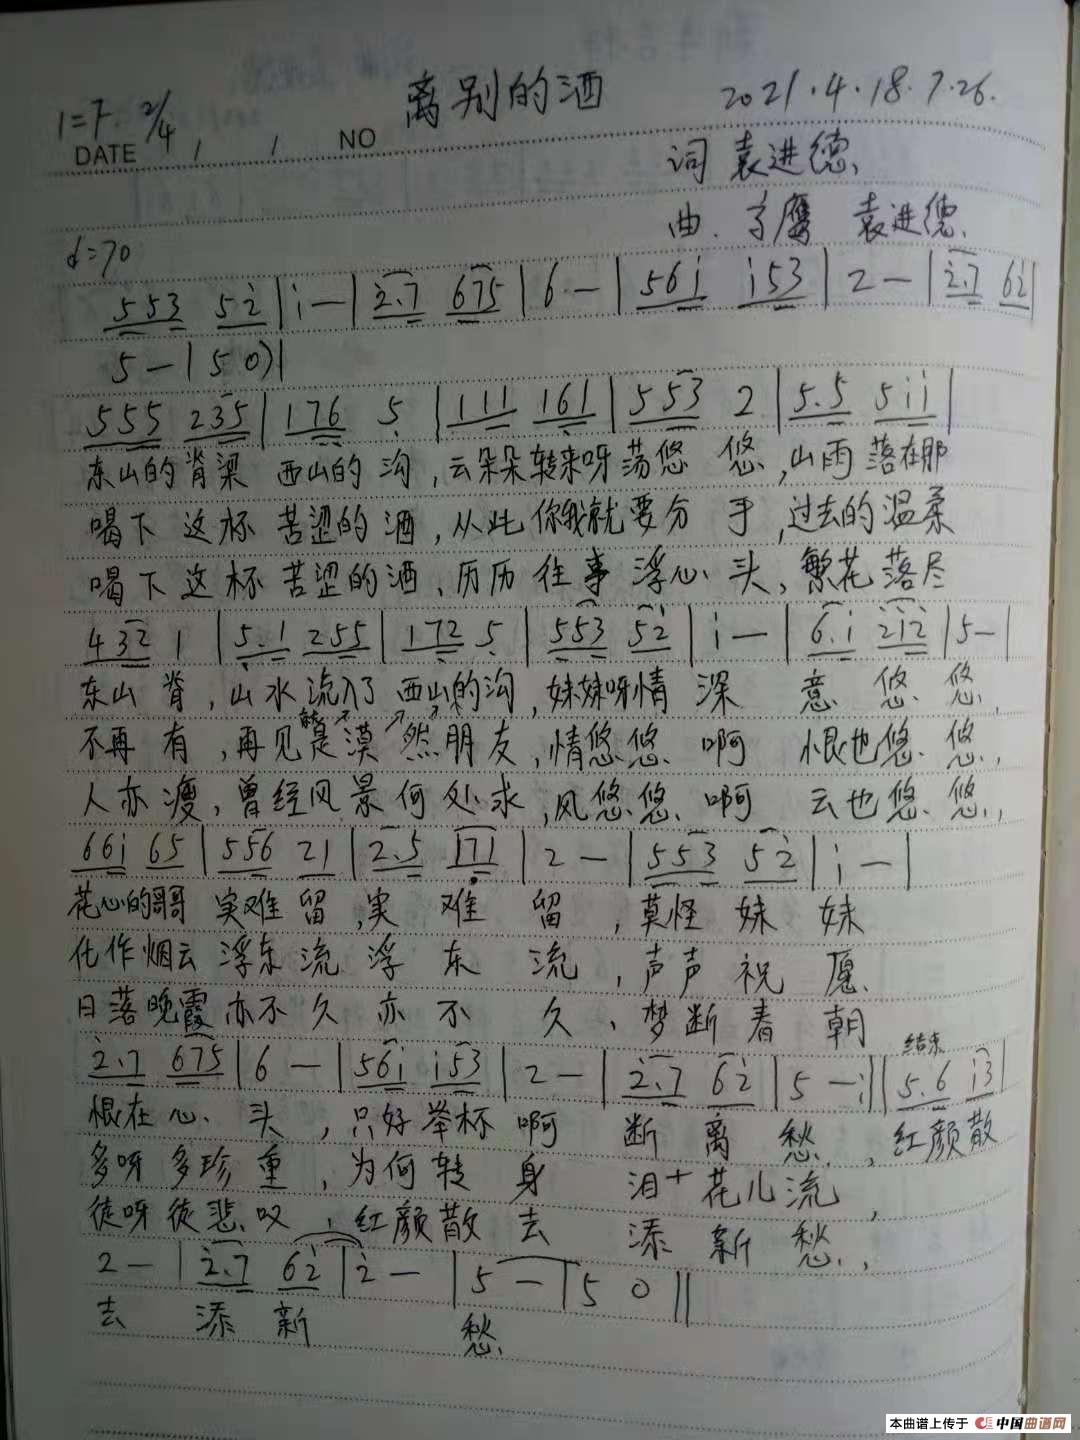 离别的酒
2021.4.18.7.26.
1=F. 2/4
DATE / / NO
词 袁进德
曲. 袁进德.
♩=70
5 5 3 5 2̇ | i — | 2̇. 7 6 7 5 | 6 — | 5 6 i i 5 3 | 2 — | 2̇. 7 6 2̇ |
5 — | 5 0) |
5 5 5 2 3 5 | 1 7 6 5 | 1 1 1 1 6 1 | 5 5 3 2 | 5. 5 5 i i |
东山的脊梁 西山的沟,云朵朵转来呀荡悠 悠,山雨落在那
喝下 这杯 苦涩的 酒,从此你我就要分 手,过去的温柔
喝下这杯苦涩的酒,历历往事浮心头,繁花落尽
4 3 2 1 | 5. 1 2 5 5 | 1 7 2 5 | 5 5 3 5 2̇ | i — | 6. i 2̇ i 2̇ | 5 — |
东山 脊,山水流入了 西山的沟,妹妹呀情 深 意 悠 悠,
不再 有,再见是漠 然朋友,情悠悠 啊 恨也悠 悠,
人亦瘦,曾经风景何处求,风悠悠 啊 云也悠 悠,
6 6 i 6 5 | 5 5 6 2 1 | 2. 5 1 7 1 | 2 — | 5 5 3 5 2̇ | i — |
花心的哥哥 实难 留,实 难 留,莫怪 妹 妹
化作烟云 浮东流 浮 东 流,声声 祝 愿
日落晚霞 亦不久 亦 不 久,梦断春朝
结束
2̇. 7 6 7 5 | 6 — | 5 6 i i 5 3 | 2 — | 2̇. 7 6 2̇ | 5 — :‖ 5. 6 i 3 |
恨在心 头,只好举杯 啊 断 离 愁,红颜散
多呀 多珍 重,为何转 身 泪+花儿流,
徒呀徒悲叹,红颜散 去 添 新 愁,
2 — | 2̇. 7 6 2̇ | 2̇ — | 5 — | 5 0 ‖
去 添 新 愁
本曲谱上传于 中国曲谱网